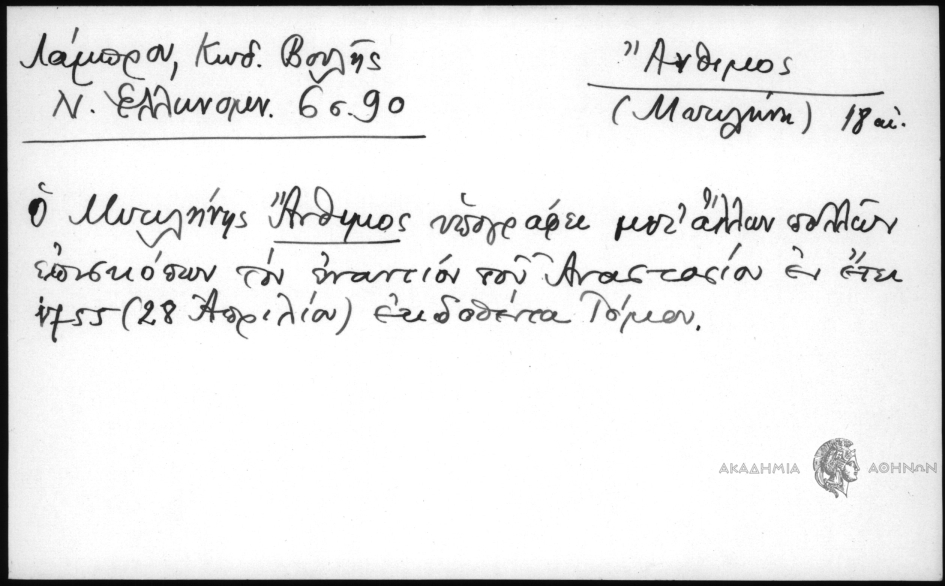 Λάμπρου, Κωδ. Βουλῆς
Ν. Ἑλληνομν. 6 σ. 90
Ἄνθιμος
(Μυτιλήνη) 18 αἰ.
Ὁ Μυτιλήνης Ἄνθιμος ὑπογράφει μετ' ἄλλων πολλῶν
ἐπισκόπων τὸν ἐναντίον τοῦ Ἀναστασίου ἐν ἔτει
1755 (28 Ἀπριλίου) ἐκδοθέντα Τόμον.
ΑΚΑΔΗΜΙΑ ΑΘΗΝΩΝ